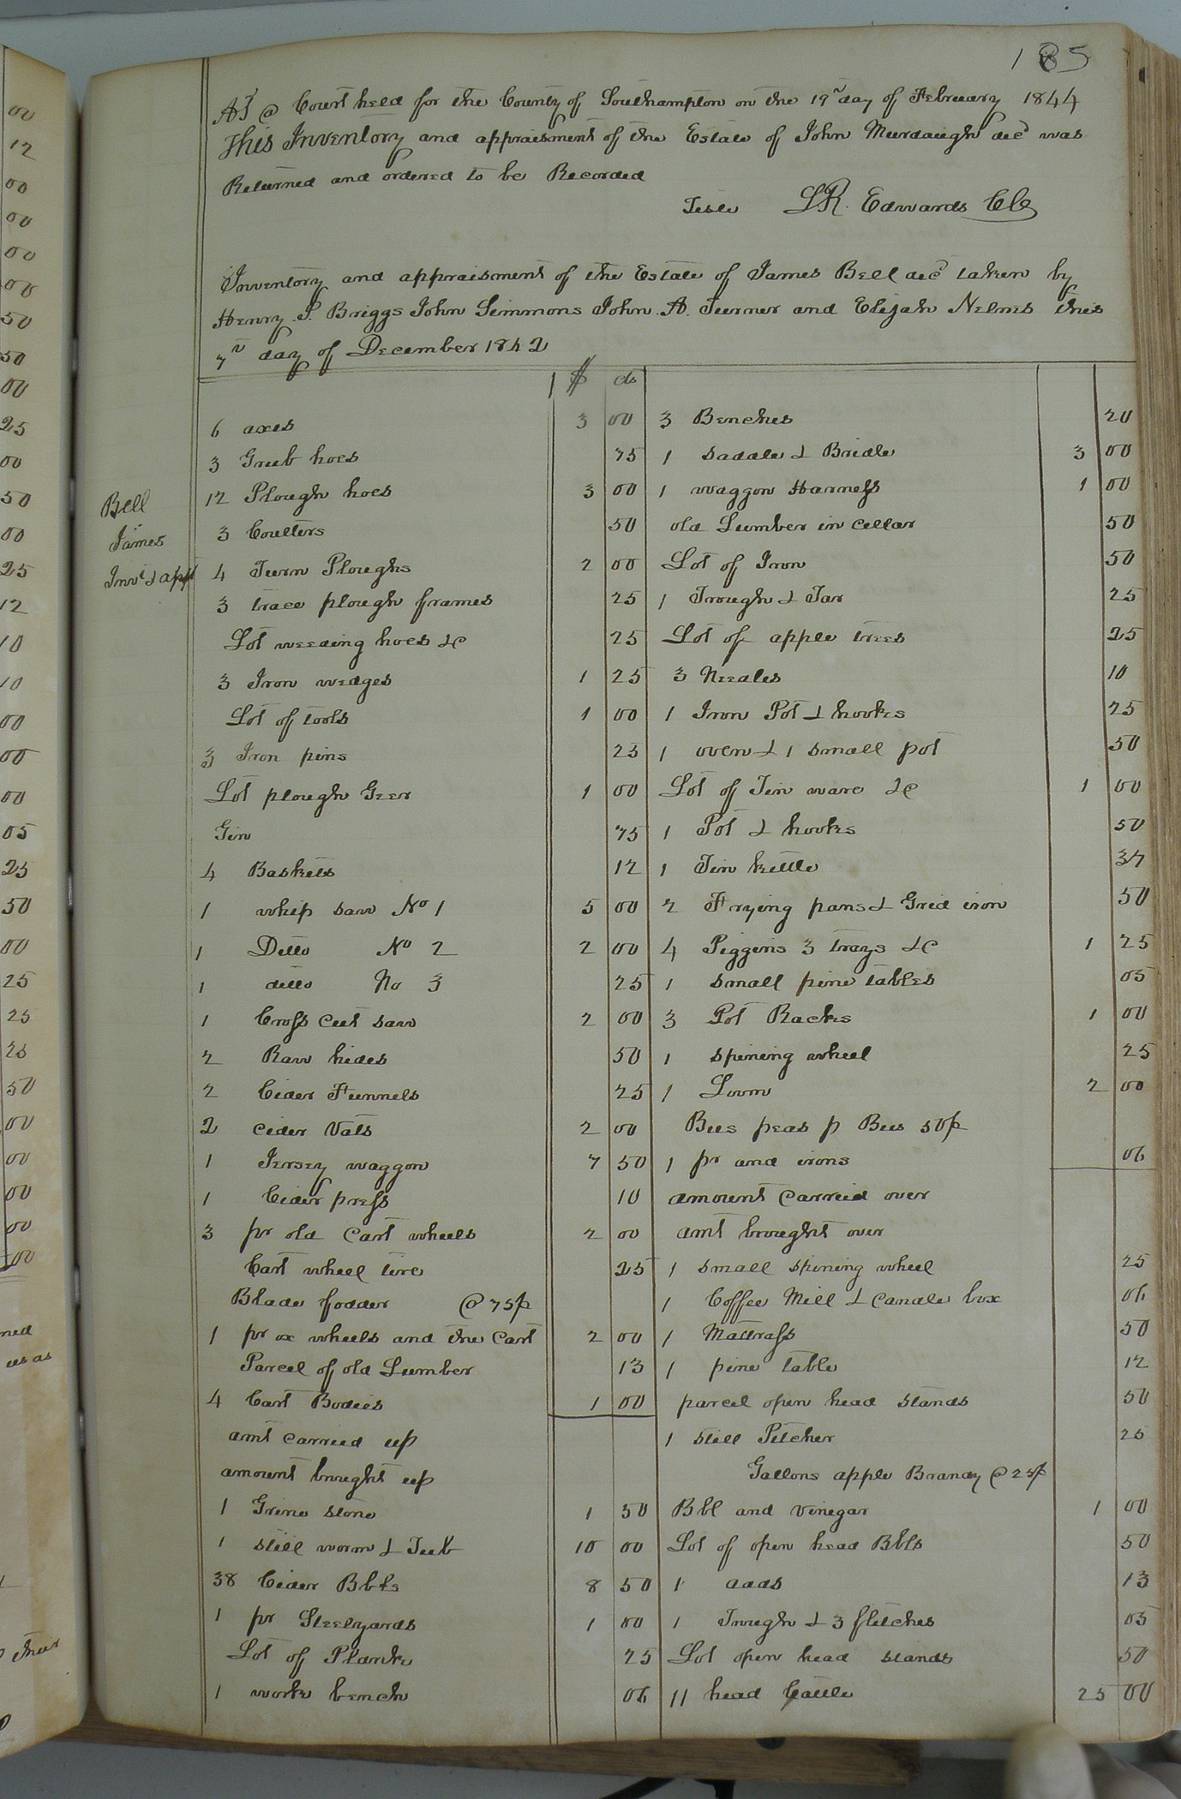 185
At a Court held for the County of Southampton on the 19th day of February 1844
This Inventory and appraisment of the Estate of John Murdaugh decd was
Returned and ordered to be Recorded
Teste L R. Edwards Clk
Inventory and appraisment of the Estate of James Bell decd taken by
Henry P. Briggs John Simmons John A. Turner and Elijah Nelms this
7th day of December 1842
Bell
James
Invt & appt
$ cts
6 axes 3 00
3 Grub hoes 75
12 Plough hoes 3 00
3 Coulters 50
4 Turn Ploughs 2 00
3 trace plough frames 25
Lot weeding hoes &c 25
3 Iron wedges 1 25
Lot of tools 1 00
3 Iron pins 25
Lot plough Geer 1 00
Gin 75
4 Baskets 12
1 whip saw No 1 5 00
1 Ditto No 2 2 00
1 ditto No 3 25
1 Cross Cut saw 2 00
2 Raw hides 50
2 Cider Funnels 25
2 cider Vats 2 00
1 Jersey waggon 7 50
1 Cider press 10
3 pr old Cart wheels 2 00
Cart wheel tire 25
Blade fodder @ 75p
1 pr ox wheels and the Cart 2 00
Parcel of old Lumber 13
4 Cart Bodies 1 00
amt carried up
amount brought up
1 Grine stone 1 50
1 still worm & Tub 10 00
38 Cider Bbls 8 50
1 pr Steelyards 1 00
Lot of Plank 25
1 work bench 06
3 Benches 20
1 saddle & Bridle 3 00
1 waggon Harness 1 00
old Lumber in cellar 50
Lot of Iron 50
1 Trough & Tar 25
Lot of apple trees 25
3 Neales 10
1 Iron Pot & hooks 25
1 oven & 1 small pot 50
Lot of Tin ware &c 1 00
1 Pot & hooks 50
1 Tin kettle 37
2 Frying pans & Grid iron 50
4 Piggins 3 trays &c 1 25
1 small pine tables 05
3 Pot Racks 1 00
1 spining wheel 25
1 Loom 2 00
Bus peas p Bus 50p
1 pr and irons 06
amount carreid over
amt brought over
1 small spining wheel 25
1 Coffee Mill & candle box 06
1 Mattrass 50
1 pine table 12
parcel open head stands 50
1 still Pitcher 25
Gallons apple Brandy @ 25p
Bbl and vinegar 1 00
Lot of open head Bbls 50
1 adds 13
1 Trough & 3 flitches 05
Lot open head stands 50
11 head Cattle 25 00